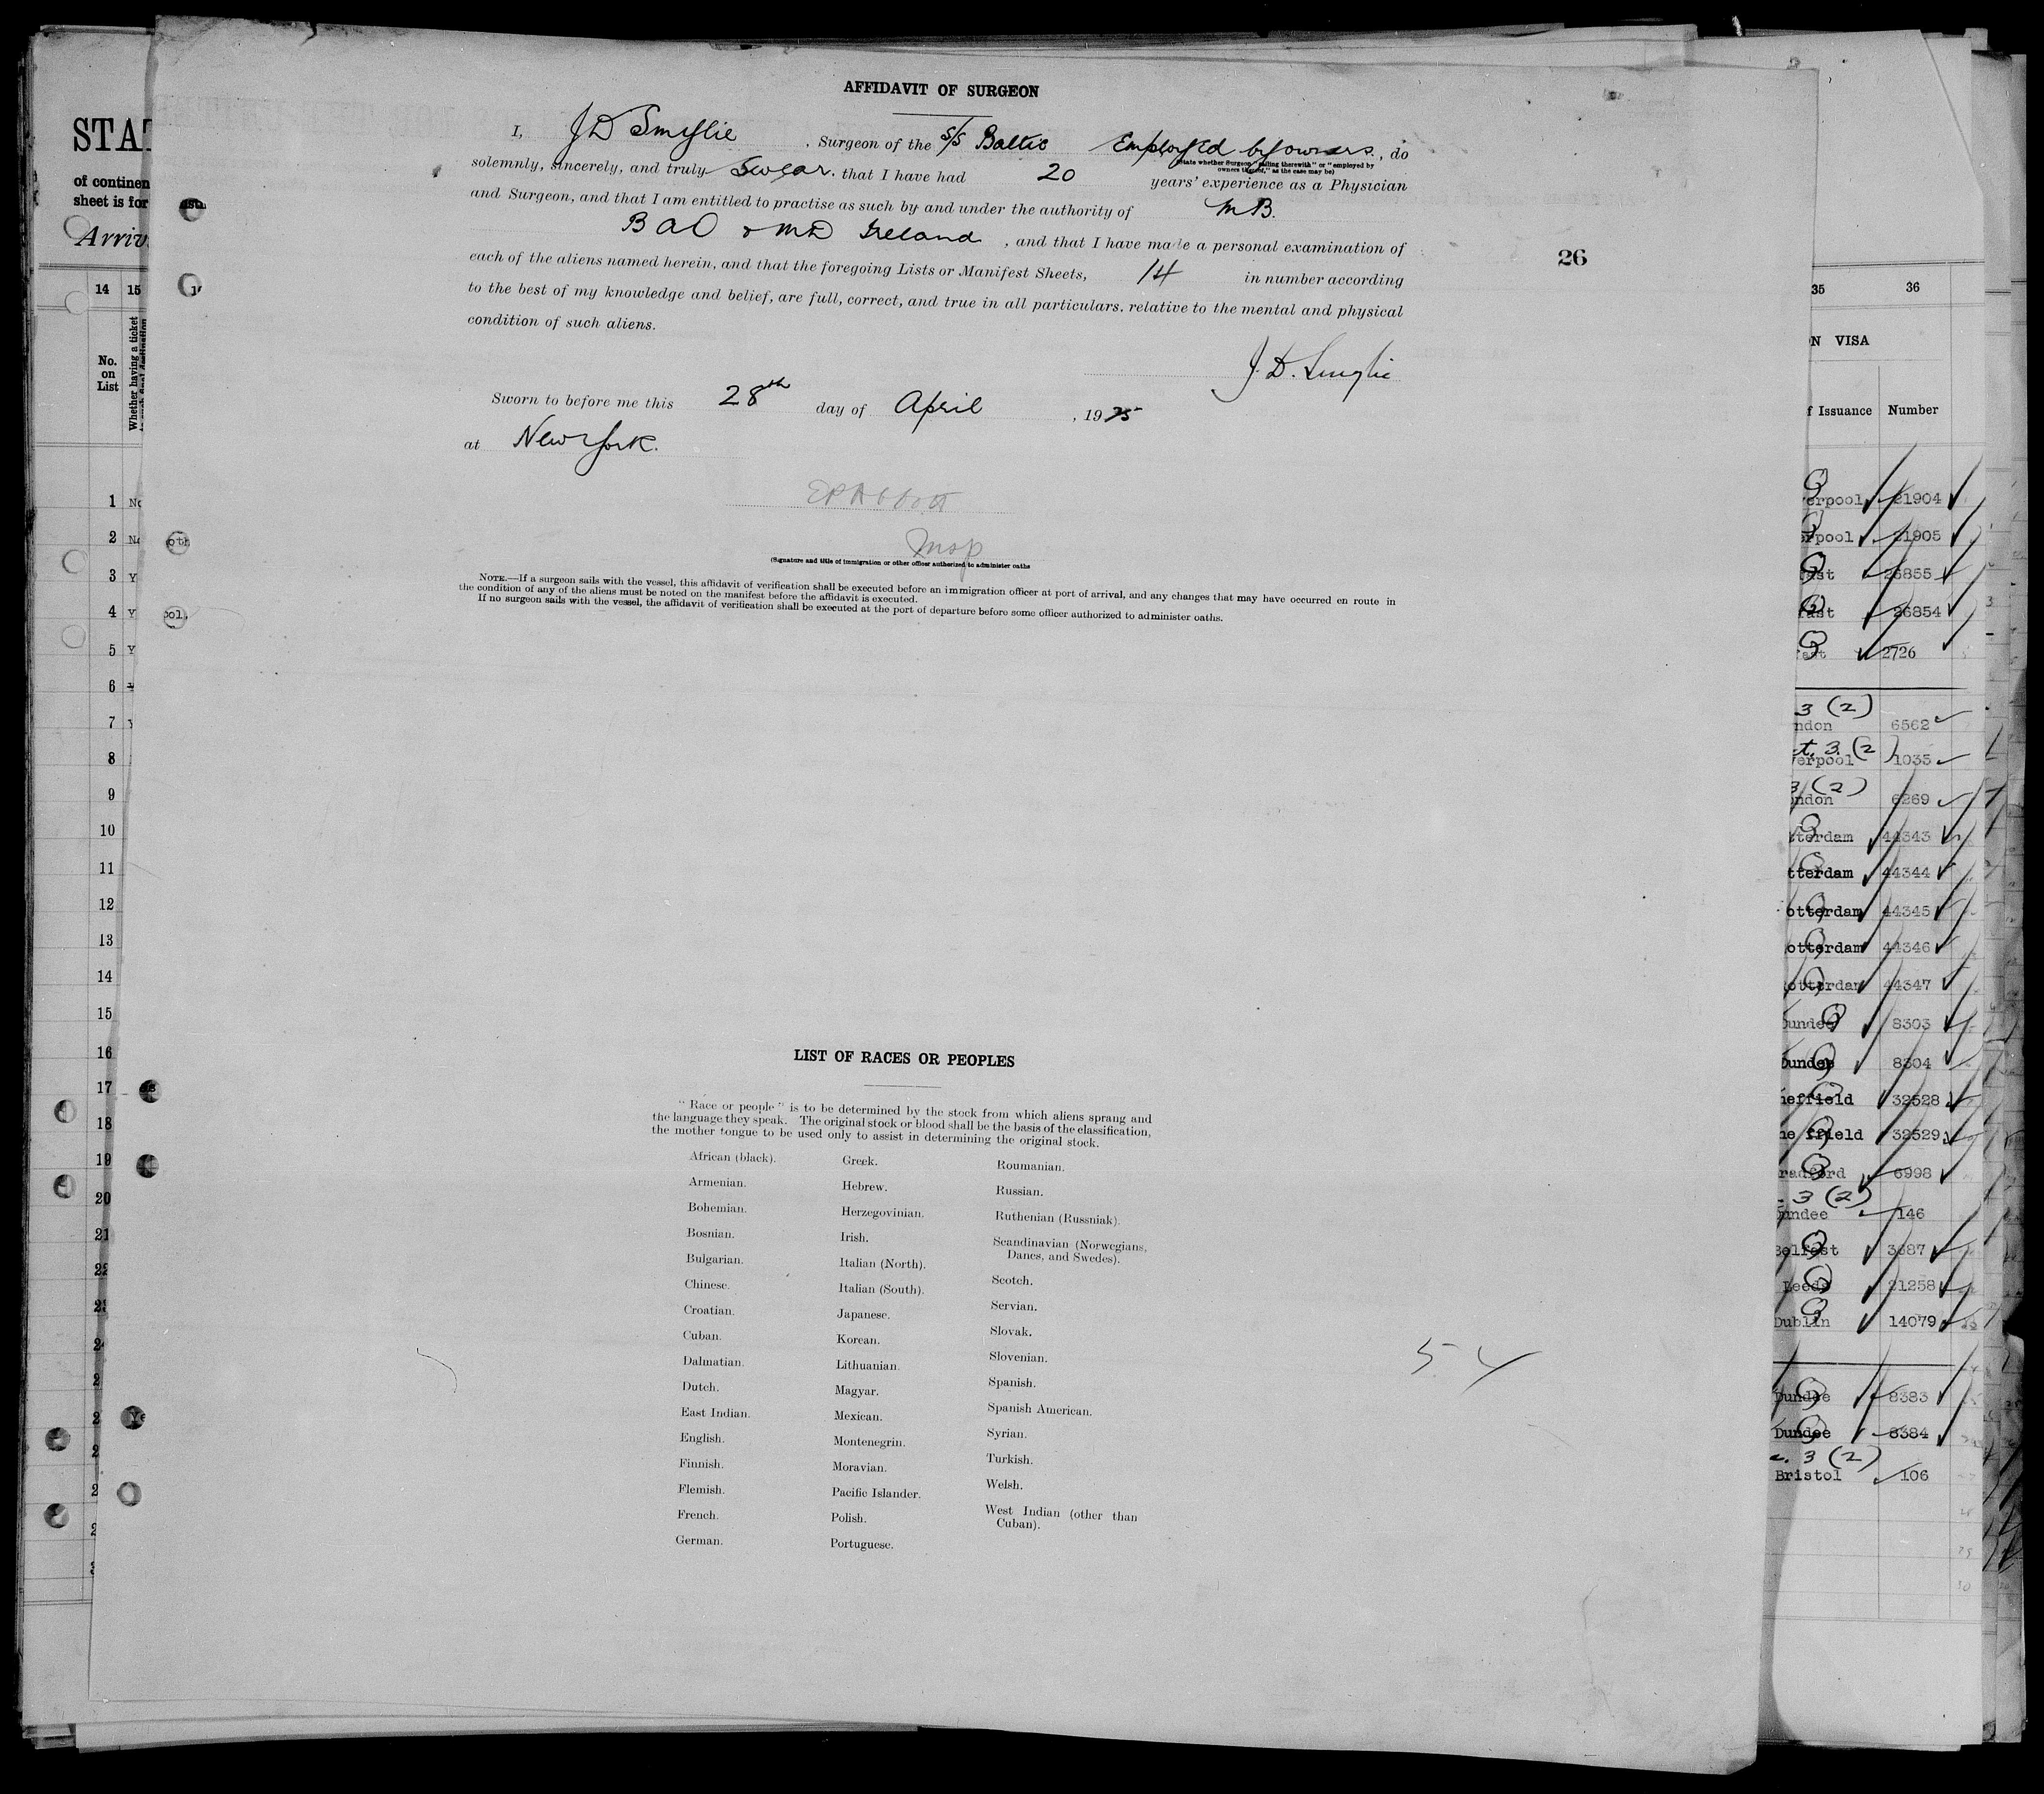 AFFIDAVIT OF SURGEON
I, J D Smylie, Surgeon of the S/S Baltic Employed by owners, do
(State whether Surgeon "sailing therewith" or "employed by
owners thereof," as the case may be)
solemnly, sincerely, and truly Swear. that I have had 20 years' experience as a Physician
and Surgeon, and that I am entitled to practise as such by and under the authority of M B.
B A O & M D Ireland, and that I have made a personal examination of
each of the aliens named herein, and that the foregoing Lists or Manifest Sheets, 14 in number according
to the best of my knowledge and belief, are full, correct, and true in all particulars, relative to the mental and physical
condition of such aliens.
26
J. D. Smylie
Sworn to before me this 28th day of April, 1925
at New York.
Insp
(Signature and title of immigration or other officer authorized to administer oaths
NOTE.—If a surgeon sails with the vessel, this affidavit of verification shall be executed before an immigration officer at port of arrival, and any changes that may have occurred en route in
the condition of any of the aliens must be noted on the manifest before the affidavit is executed.
If no surgeon sails with the vessel, the affidavit of verification shall be executed at the port of departure before some officer authorized to administer oaths.
LIST OF RACES OR PEOPLES
"Race or people" is to be determined by the stock from which aliens sprang and
the language they speak. The original stock or blood shall be the basis of the classification,
the mother tongue to be used only to assist in determining the original stock.
African (black).
Armenian.
Bohemian.
Bosnian.
Bulgarian.
Chinese.
Croatian.
Cuban.
Dalmatian.
Dutch.
East Indian.
English.
Finnish.
Flemish.
French.
German.
Greek.
Hebrew.
Herzegovinian.
Irish.
Italian (North).
Italian (South).
Japanese.
Korean.
Lithuanian.
Magyar.
Mexican.
Montenegrin.
Moravian.
Pacific Islander.
Polish.
Portuguese.
Roumanian.
Russian.
Ruthenian (Russniak).
Scandinavian (Norwegians,
Danes, and Swedes).
Scotch.
Servian.
Slovak.
Slovenian.
Spanish.
Spanish American.
Syrian.
Turkish.
Welsh.
West Indian (other than
Cuban).
54
STAT
of continen
sheet is for
Arriv
14 15
No.
on
List
Whether having a ticket
1 No
2
3 Y
4 Y
5 Y
6
7
8
9
10
11
12
13
14
15
16
17
18
19
20
21
22
35 36
N VISA
f Issuance Number
erpool 21904
rpool 21905
fast 26855
fast 26854
fast 2726
3 (2)
ndon 6562
t. 3 (2)
verpool 1035
3 (2)
ondon 6269
tterdam 44343
tterdam 44344
otterdam 44345
otterdam 44346
otterdam 44347
Dundee 8303
Dundee 8304
heffield 32528
he ffield 32529
radford 6998
3 (2)
undee 146
Belfast 3687
Leeds 21258
Dublin 14079
Dundee 8383
Dundee 8384
c. 3 (2)
Bristol 106